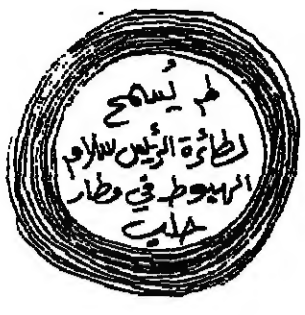 لم يُسمح
لطائرة الرئيس سلام
الهبوط في مطار
حلب